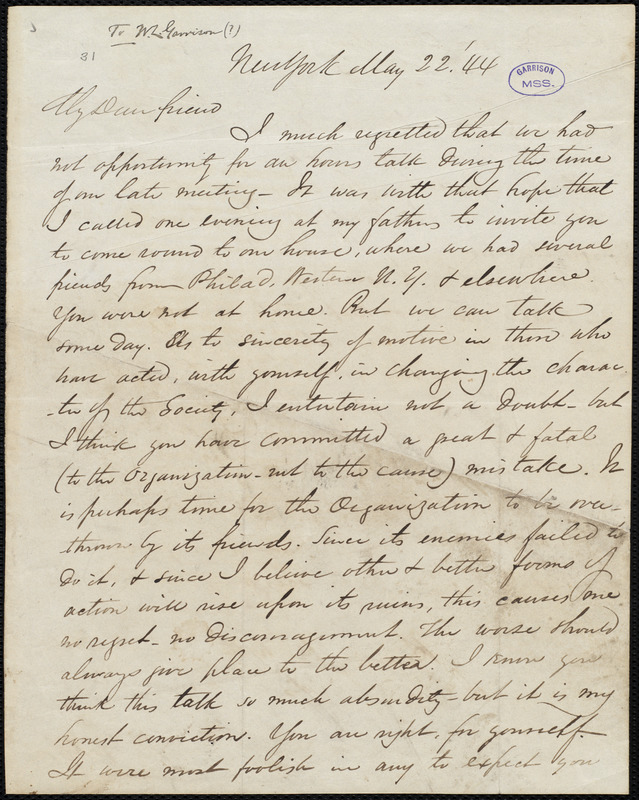 To W. L. Garrison (?)
31
New York May 22. '44
GARRISON
MSS.
My Dear friend
I much regretted that we had
not opportunity for an hours talk during the time
of our late meeting - It was with that hope that
I called one evening at my fathers to invite you
to come round to our house, where we had several
friends from Philad, Western N. Y. & elsewhere.
You were not at home. But we can talk
some day. As to sincerity of motive in those who
have acted, with yourself, in changing the charac-
-ter of the Society, I entertain not a doubt - but
I think you have committed a great & fatal
(to the Organization - not to the cause) mistake. It
is perhaps time for the Organization to be over-
thrown by its friends. Since its enemies failed to
do it, & since I believe other & better forms of
action will rise upon its ruins, this causes me
no regret - no discouragement. The worse should
always give place to the better. I know you
think this talk so much absurdity - but it is my
honest conviction. You are right, for yourself.
It were most foolish in any to expect you